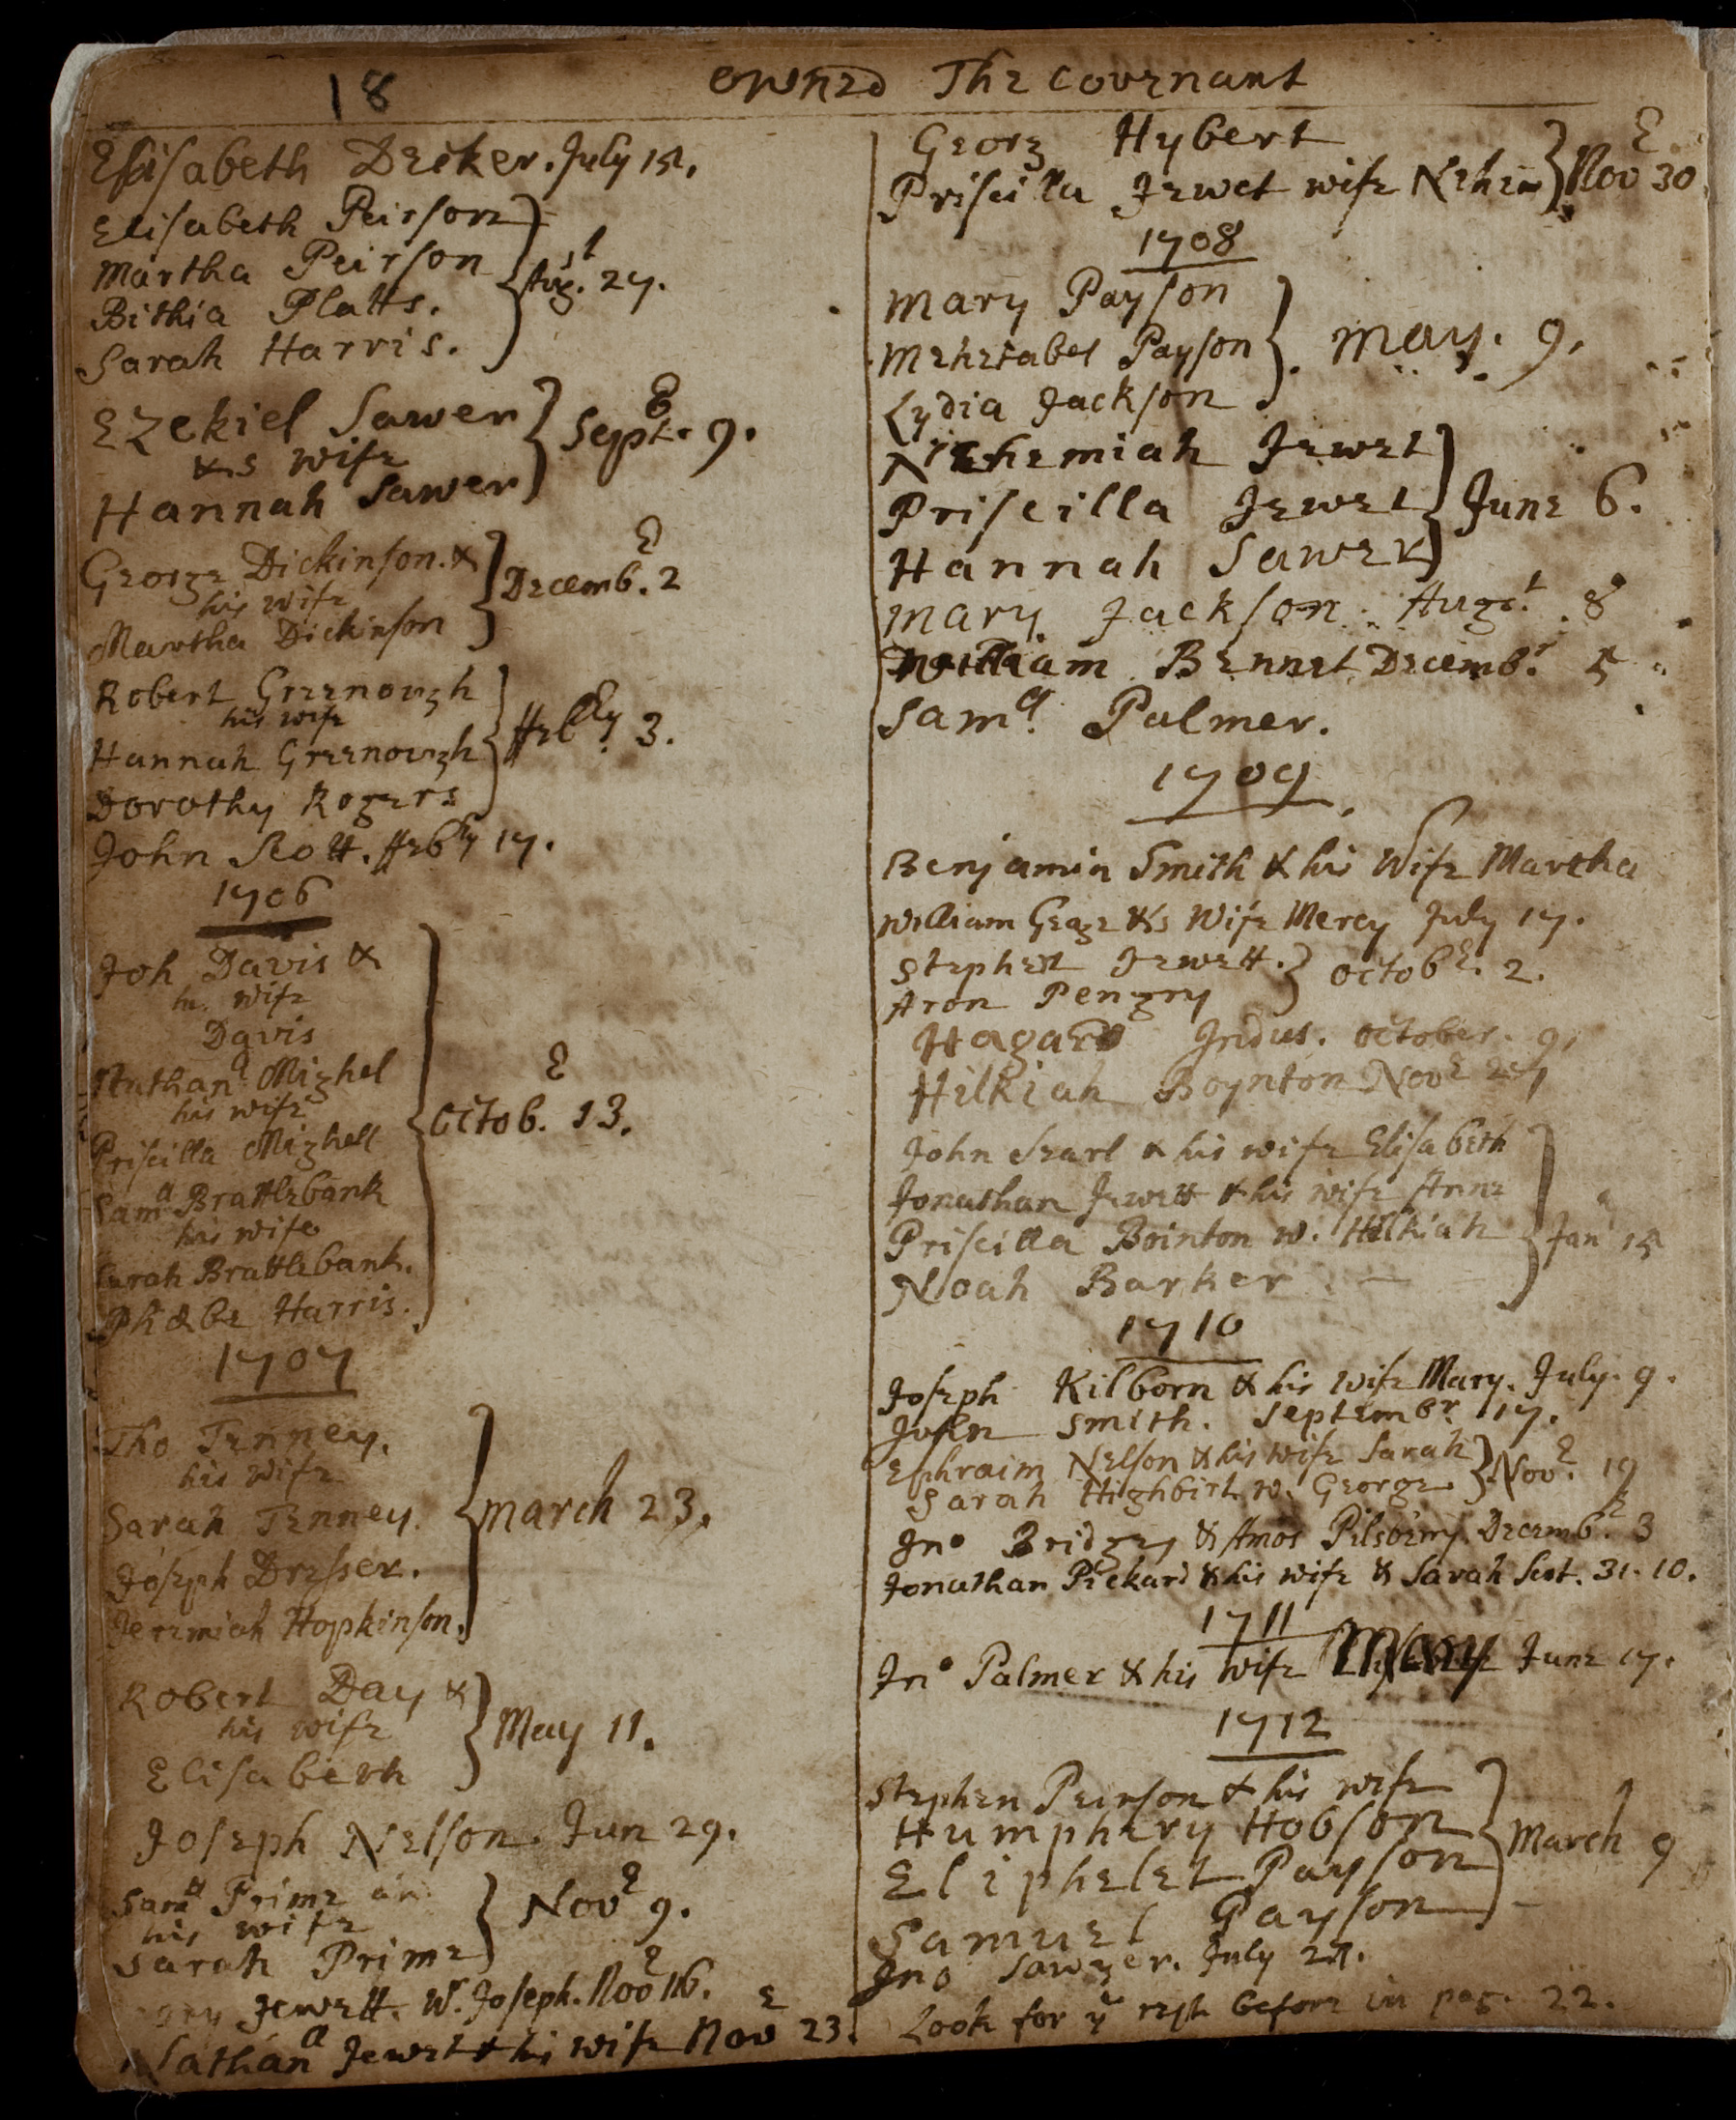 18
Owned The Covenant
Elisabeth Decker. July 15.
Elisabeth Peirson
Martha Peirson
Bithia Platts.
Sarah Harris.
Aug.st 27.
Ezekiel Sawer
&s wife
Hannah Sawer
Septe. 9.
George Dickinson. &
his wife
Martha Dickinson
Decemb.e 2
Robert Greenough
his wife
Hannah Greenough
Dorothy Rogers
ffebry 3.
John Scott. ffebry 17.
1706
Joh Davis &
his wife
Davis
Nathanll Mighel
his wife
Priscilla Mighell
Samll Brattlebank
his wife
Sarah Brattlebank.
Phœbe Harris.
Octob.e 13.
1707
Tho Tenney.
his wife
Sarah Tenney.
Joseph Dresser.
Jeremiah Hopkinson.
March 23.
Robert Day &
his wife
Elisabeth
May 11.
Joseph Nelson. Jun 29.
Samll Prime an
his wife
Sarah Prime
Nove 9.
Jewett. W. Joseph. Nove 16.
Nathanll Jewet & his wife Nove 23.
Georg Hybert
Priscilla Jewet wife Nehem
Nove 30
1708
Mary Payson
Mehetabel Payson
Lydia Jackson
May. 9.
Nehemiah Jewet
Priscilla Jewet
Hannah Sawer
June 6.
Mary Jackson. Augst. 8
William Bennet Decembr. 5
Samll Palmer.
1709
Benjamin Smith & his Wife Martha
William Geage &s Wife Mercy July 17.
Stephen Jewett.
Aron Pengry
Octobe. 2.
Hagar Indus. October. 9.
Hilkiah Boynton Nove 27
John Searl & his wife Elisabeth
Jonathan Jewett & his wife Anne
Priscilla Bointon w. Hilkiah
Noah Barker
Jan 15
1710
Joseph Kilborn & his wife Mary. July. 9.
John Smith. Septembr. 17.
Ephraim Nelson & his wife Sarah
Sarah Highbirt w. George
Nove. 19
Jno Bridges & Amos Pilsbery. Decembe. 3
Jonathan Pickard & his wife & Sarah Scot. 31. 10.
1711
Jno Palmer & his wife Mary June 17.
1712
Stephen Peirson & his wife
Humphery Hobson
Eliphelet Payson
Samuel Payson
March 9
Jno Sawyer. July 27.
Look for ye rest before in pag. 22.